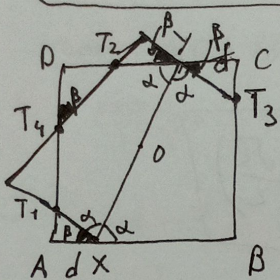 β
T₂ y β
D α d C
α α
T₃
β
T₄
O
T₁ α α
β
A d X B